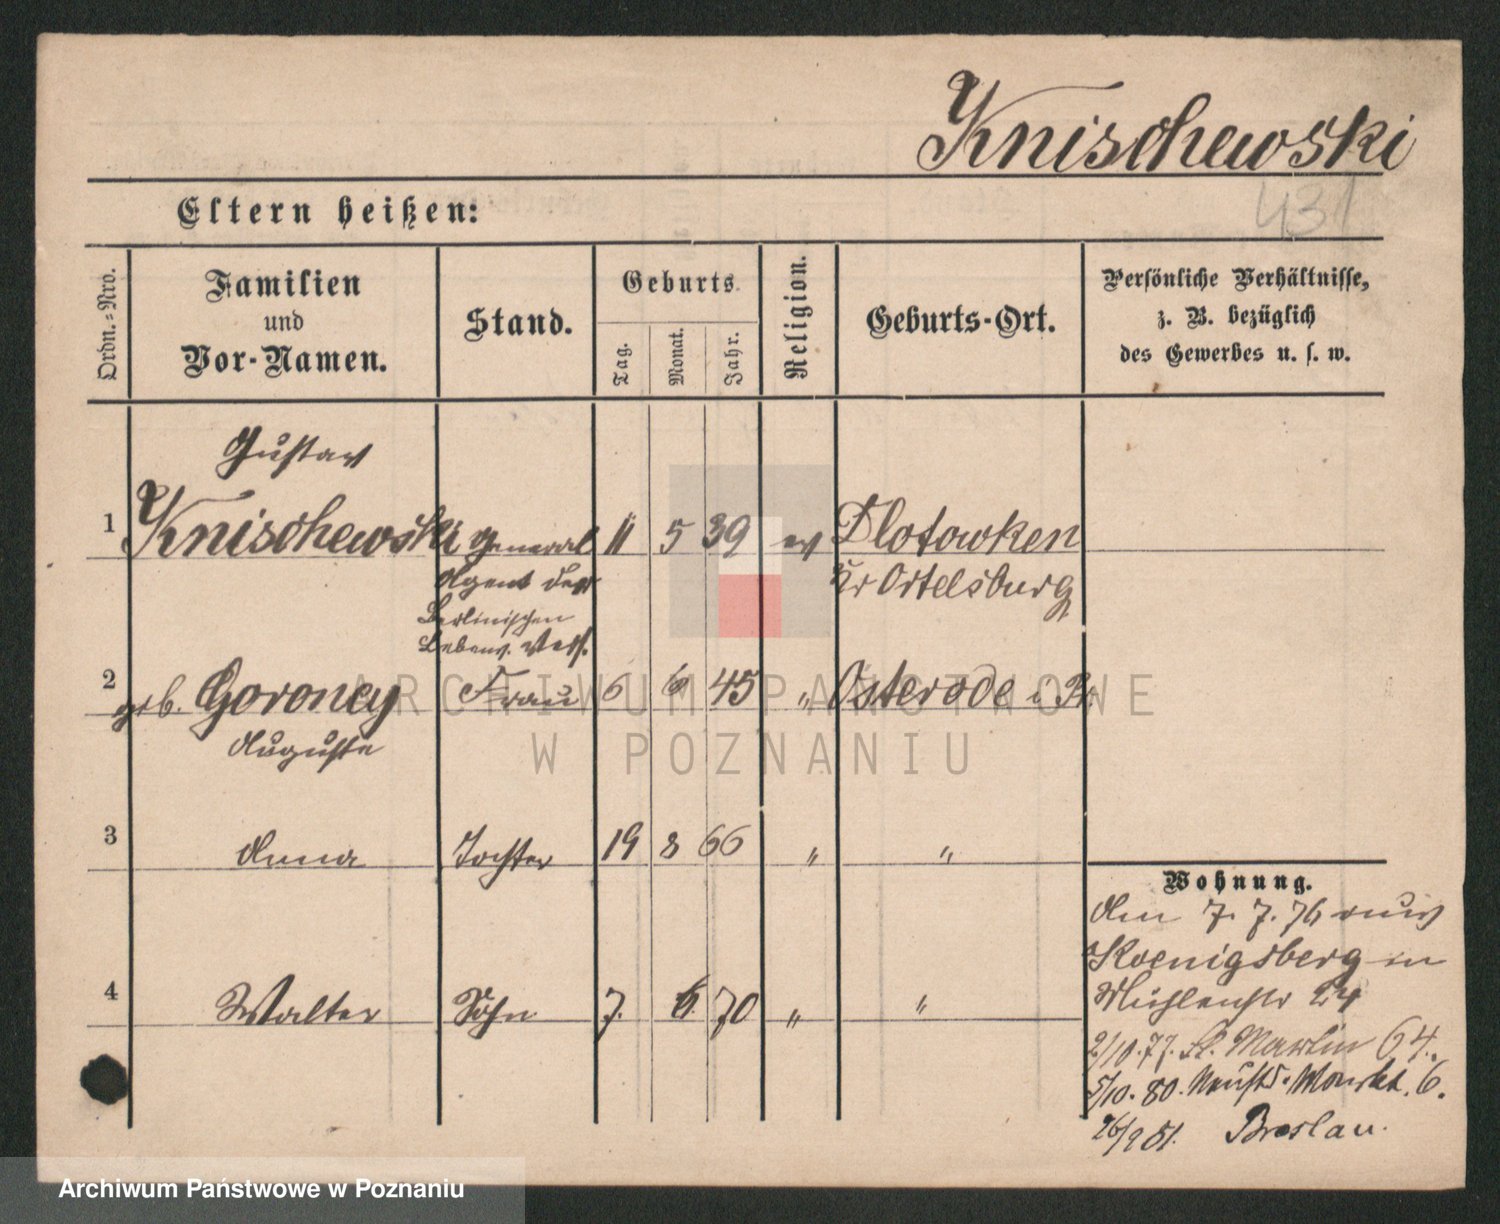 Knischewski
431
Eltern heißen:
Ordn.=Nro.
Familien
und
Vor-Namen.
Stand.
Geburts
Tag.
Monat.
Jahr.
Religion.
Geburts-Ort.
Persönliche Verhältnisse,
z. B. bezüglich
des Gewerbes u. s. w.
Gustav
1 Knischewski General 11 5 39 ev Dlotowken
Agent der Kr Ortelsburg
Berlinischen
Lebens. Vers.
2 geb. Goroncy Frau 6 6 45 " Osterode i Pr.
Auguste
3 Anna Tochter 19 8 66 " "
4 Walter Sohn 7. 6. 70 " "
Wohnung.
Am 7. 7. 76 aus
Koenigsberg in
Mühlenstr 24
2/10. 77. St. Martin 64.
5/10. 80. Neust. Markt. 6.
26/9 81. Breslau.
ARCHIWUM PAŃSTWOWE
W POZNANIU
Archiwum Państwowe w Poznaniu